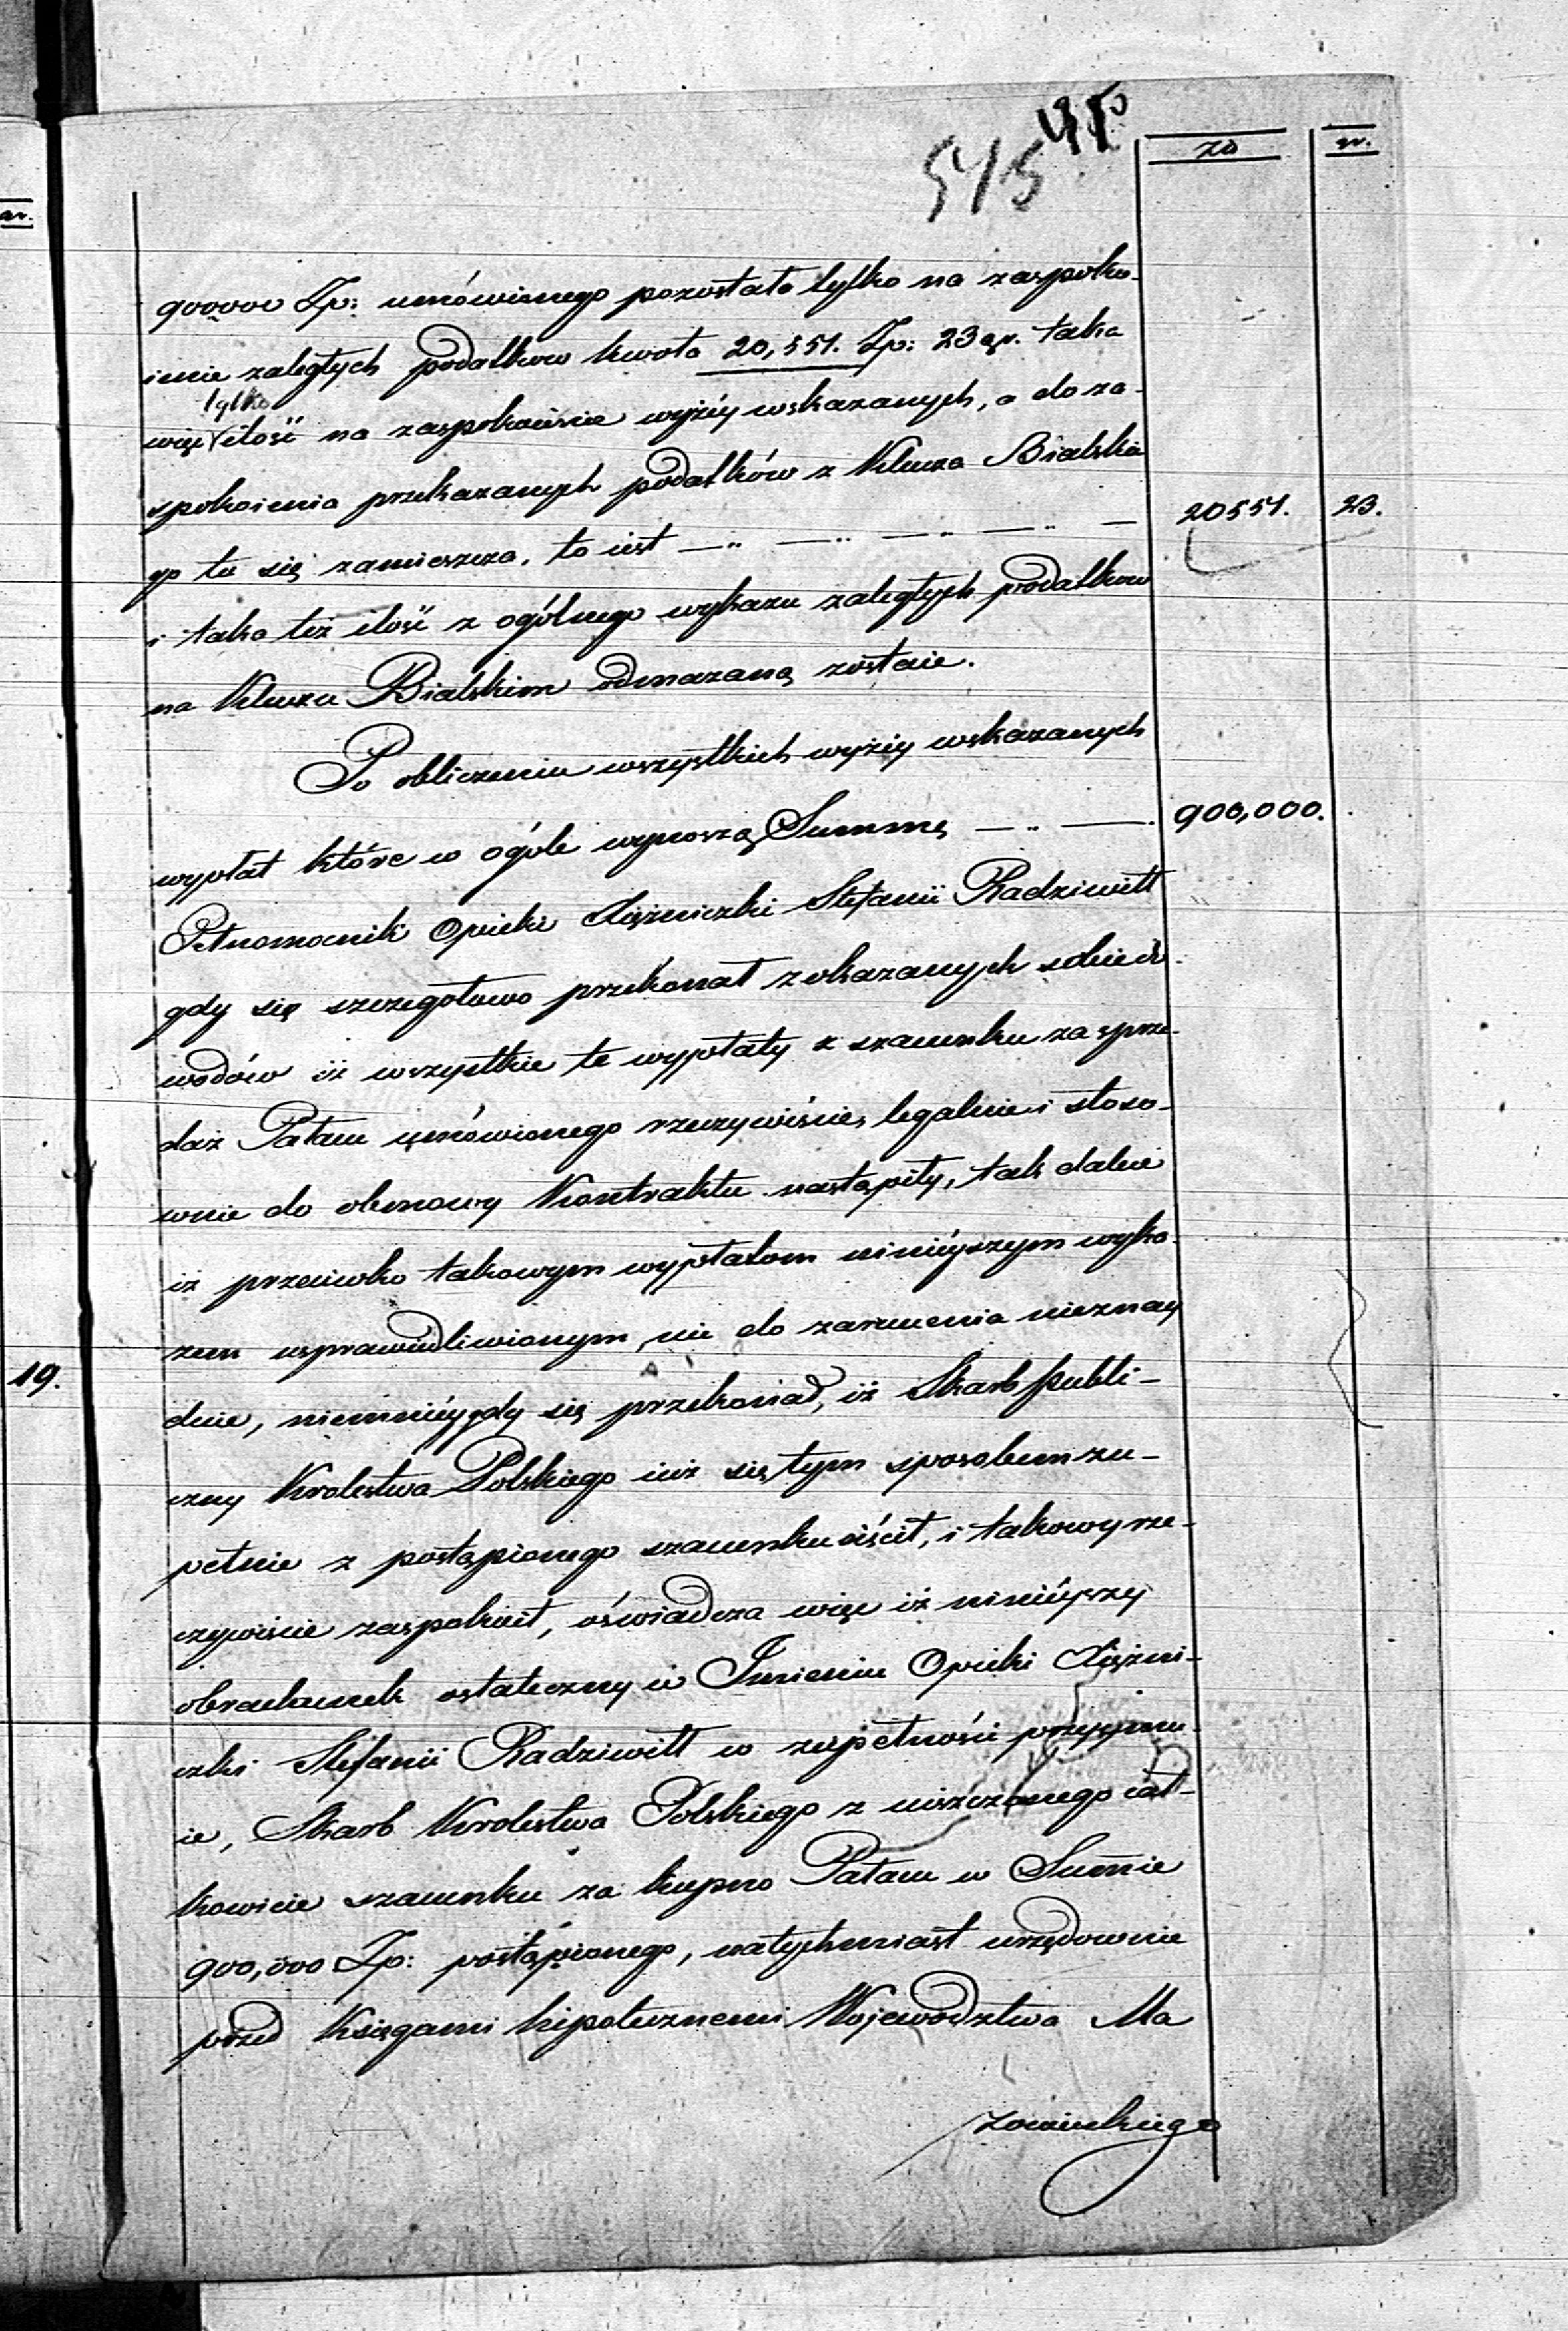 545
zł gr.
900,000 Zp: umówionego pozostała tylko na zaspoko-
ienie zaległych podatkow kwota 20,551. Zp: 23 gr. taka
tylko
więc ilość na zaspokoienie wyżéy wskazanych, a do za-
spokoienia przekazanych podatków z Klucza Bialskie
go tu się zamieszcza, to iest —„ —„ —„ —„ — 20551. 23.
i taka też ilość z ogólnego wykazu zaległych podatkow
na Kluczu Bialskim odmazaną zostaie.
Po obliczeniu wszystkich wyżéy wskazanych
wypłat które w ogóle wynoszą Summę —„ — 900,000.
Pełnomocnik Opieki Xiężniczki Stefanii Radziwiłł
gdy się szczegołowo przekonał z okazanych sobie do-
wodów iż wszystkie te wypłaty z szacunku za sprze-
daż Pałacu umówionego rzeczywiście, legalnie i stoso-
wnie do osnowy Kontraktu nastąpiły, tak dalece
iż przeciwko takowym wypłatom ninieyszym wyka-
zem usprawiedliwionym, nic do zarzucenia nieznay
duie, niemniéy gdy się przekonał, iż Skarb publi-
czny Krolestwa Polskiego iuż się tym sposobem zu-
pełnie z postąpionego szacunku uiścił, i takowy rze-
czywiście zaspokoił, oświadcza więc iż ninieyszy
obrachunek ostateczny w Imieniu Opieki Xiężni-
czki Stefanii Radziwiłł w zupełności przyymu-
ie, Skarb Krolestwa Polskiego z uiszczonego cał-
kowicie szacunku za kupno Pałacu w Summie
900,000 Zp: postąpionego, natychmiast urzędownie
przed Księgami hipotecznemi Województwa Ma
zowieckiego
19.